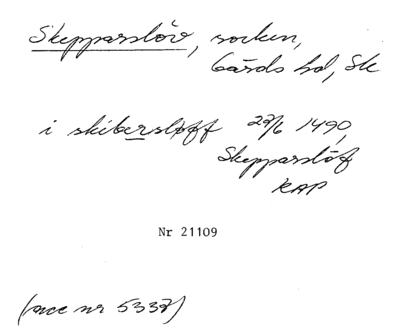 Skepparslöv, socken,
Gärds hd, Sk
i skibersløff 22/6 1490,
Skepparslöf
KAP
Nr 21109
(acc nr 5337)